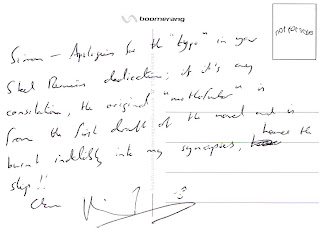 boomerang
not for resale
Simon – Apologies for the "typo" in your
Steel Remains dedication; if it's any
consolation, the original "motherfucker" is
from the first draft of the novel and is
burnt indelibly into my synapses, hence the
slip!!